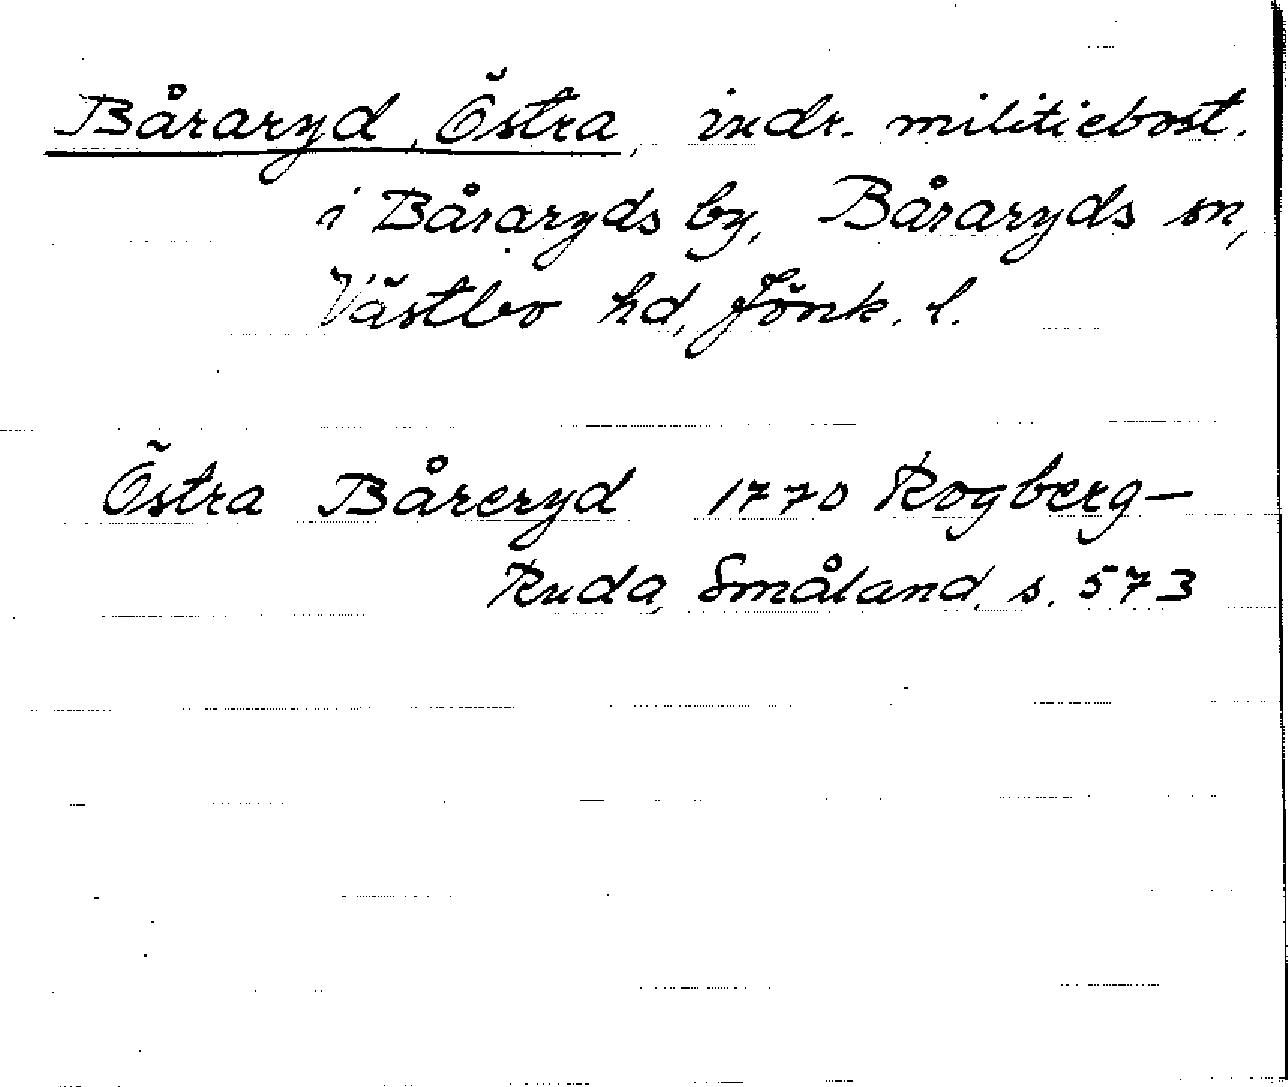 Båraryd, Östra, indr. militiebost.
i Båraryds by, Båraryds sn,
Västbo hd, Jönk. l.
Östra Båreryd 1770 Rogberg-
Ruda, Småland, s. 573